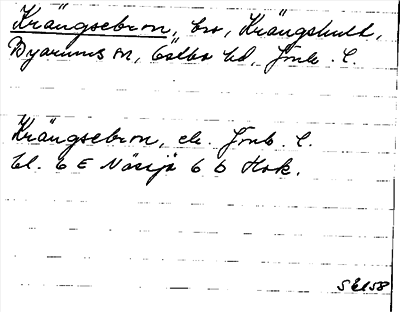 Krängsebron, bro, Krängshult,
Byarums sn, Östbo hd, Jönk. l.
Krängsebron, ek. Jönk. l.
bl. 6 E Nässjö 6 D Hok.